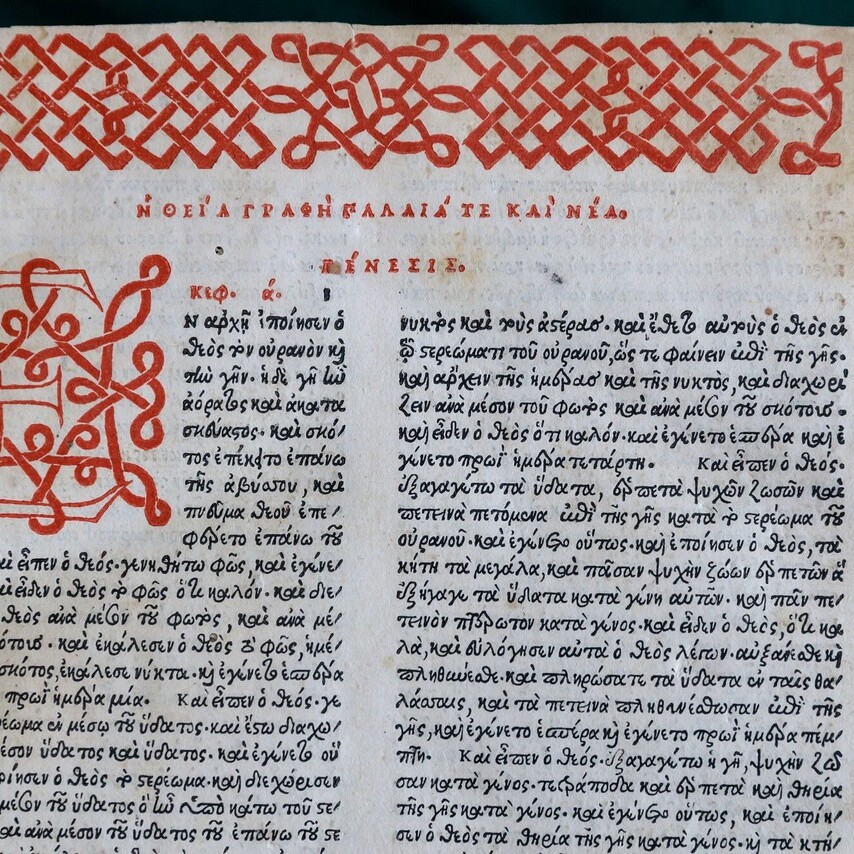 Ἡ ΘΕΊΑ ΓΡΑΦῊ ΠΑΛΑΙΆ ΤΕ ΚΑῚ ΝΈΑ.
ΓΈΝΕΣΙΣ.
Κεφ. ά.
Ἐν ἀρχῇ ἐποίησεν ὁ
θεὸς τὸν οὐρανὸν καὶ
τὴν γῆν· ἡ δὲ γῆ ἦν
ἀόρατος καὶ ἀκατα
σκεύαστος· καὶ σκό/
τος ἐπέκειτο ἐπάνω
τῆς ἀβύσσου, καὶ
πνεῦμα θεοῦ ἐπε/
φέρετο ἐπάνω τοῦ
αὶ εἶπεν ὁ θεός· γενηθήτω φῶς, καὶ ἐγένε/
αὶ εἶδεν ὁ θεὸς τὸ φῶς ὅτι καλόν· καὶ διε/
θεὸς ἀνὰ μέσον τοῦ φωτὸς, καὶ ἀνὰ μέ/
ότους· καὶ ἐκάλεσεν ὁ θεὸς τὸ φῶς, ἡμέ/
σκότος, ἐκάλεσε νύκτα· καὶ ἐγένετο ἑσπέρα
πρωῒ ἡμέρα μία. Καὶ εἶπεν ὁ θεός· γε
ρέωμα ἐν μέσῳ τοῦ ὕδατος· καὶ ἔστω διαχω/
έσον ὕδατος καὶ ὕδατος· καὶ ἐγένετο οὕ
ποίησεν ὁ θεὸς τὸ στερέωμα· καὶ διεχώρισεν
μέσον τοῦ ὕδατος ὃ ἦν ὑπὸ κάτω τοῦ στε/
αὶ ἀνὰ μέσον τοῦ ὕδατος τοῦ ἐπάνω τοῦ στε
νυκτὸς καὶ τοὺς ἀστέρας· καὶ ἔθετο αὐτοὺς ὁ θεὸς ἐν
τῷ στερεώματι τοῦ οὐρανοῦ, ὥς τε φαίνειν ἐπὶ τῆς γῆς·
καὶ ἄρχειν τῆς ἡμέρας καὶ τῆς νυκτὸς, καὶ διαχωρί
ζειν ἀνὰ μέσον τοῦ φωτὸς καὶ ἀνὰ μέσον τοῦ σκότους·
καὶ εἶδεν ὁ θεὸς ὅτι καλόν· καὶ ἐγένετο ἑσπέρα καὶ ἐ
γένετο πρωῒ ἡμέρα τετάρτη. Καὶ εἶπεν ὁ θεός·
ἐξαγαγέτω τὰ ὕδατα, ἑρπετὰ ψυχῶν ζωσῶν καὶ
πετεινὰ πετόμενα ἐπὶ τῆς γῆς κατὰ τὸ στερέωμα τοῦ
οὐρανοῦ· καὶ ἐγένετο οὕτως· καὶ ἐποίησεν ὁ θεὸς, τὰ
κήτη τὰ μεγάλα, καὶ πᾶσαν ψυχὴν ζώων ἑρπετῶν ἃ
ἐξήγαγε τὰ ὕδατα κατὰ γένη αὐτῶν· καὶ πᾶν πε/
τεινὸν πτερωτὸν κατὰ γένος· καὶ εἶδεν ὁ θεὸς, ὅτι κα
λὰ, καὶ εὐλόγησεν αὐτὰ ὁ θεὸς λέγων· αὐξάνεσθε καὶ
πληθύνεσθε· καὶ πληρώσατε τὰ ὕδατα ἐν ταῖς θα/
λάσσαις, καὶ τὰ πετεινὰ πληθυνέσθωσαν ἐπὶ τῆς
γῆς, καὶ ἐγένετο ἑσπέρα καὶ ἐγένετο πρωῒ ἡμέρα πέμ/
πτη. Καὶ εἶπεν ὁ θεός· ἐξαγαγέτω ἡ γῆ, ψυχὴν ζῶ
σαν κατὰ γένος· τετράποδα καὶ ἑρπετὰ καὶ θηρία
τῆς γῆς κατὰ γένος· καὶ ἐγένετο οὕτως, καὶ ἐποίη/
σεν ὁ θεὸς τὰ θηρία τῆς γῆς κατὰ γένος· καὶ τὰ κτή/